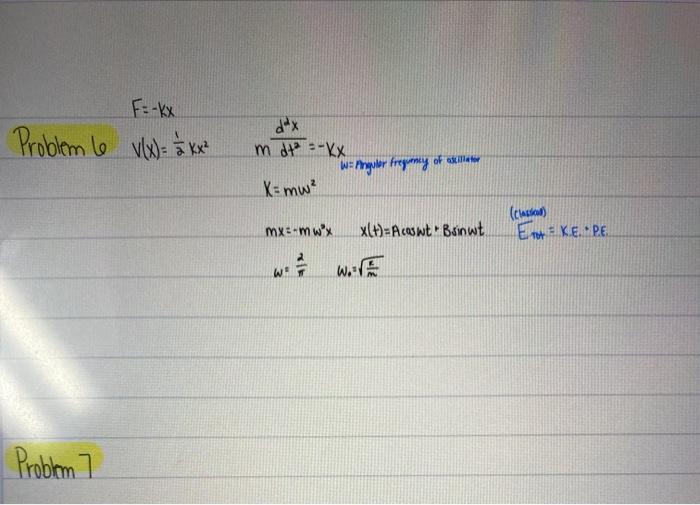 F=-Kx
Problem 6 V(x)= 1/2 Kx² m d²x/dt² =-Kx
w= Angular frequency of oscillator
K=mw²
(classical)
mx=-mw²x x(t)=Acoswt+Bsinwt E_TOT = K.E.+P.E.
w= 2/π w₀=√K/m
Problem 7